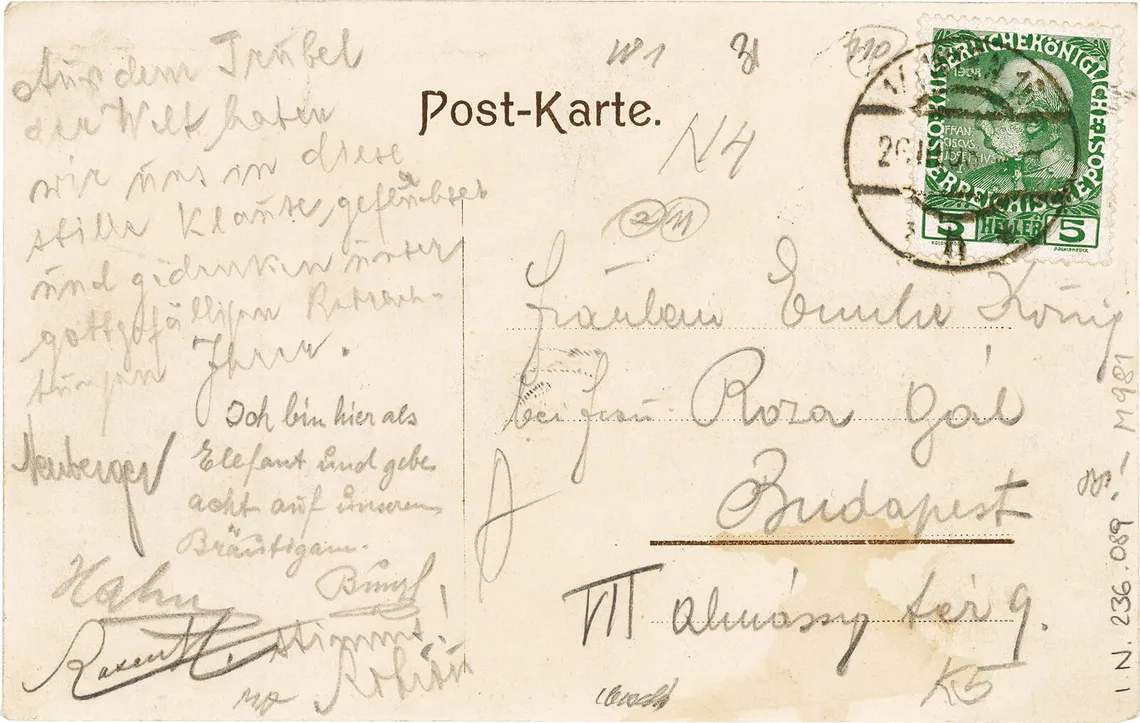 Aus dem Trubel
der Welt haben
wir uns in diese
stille Klause geflüchtet
und gedenken unter
gottgefälligen Betrach-
tungen Ihrer.
Neuberger
Ich bin hier als
Elefant und gebe
acht auf unseren
Bräutigam.
Hahn
stimmt!
Post-Karte.
W1
31
N4
2 11
KAISERLICHE KÖNIGLICHE ÖSTERREICHISCHE POST
1908
FRAN
CISCUS
IOSEPHUS I
5 HELLER 5
Fräulein Emilie König
bei Frau Roza Gál
Budapest
VII Almássy tér 9.
K5
I.N. 236.089
M981